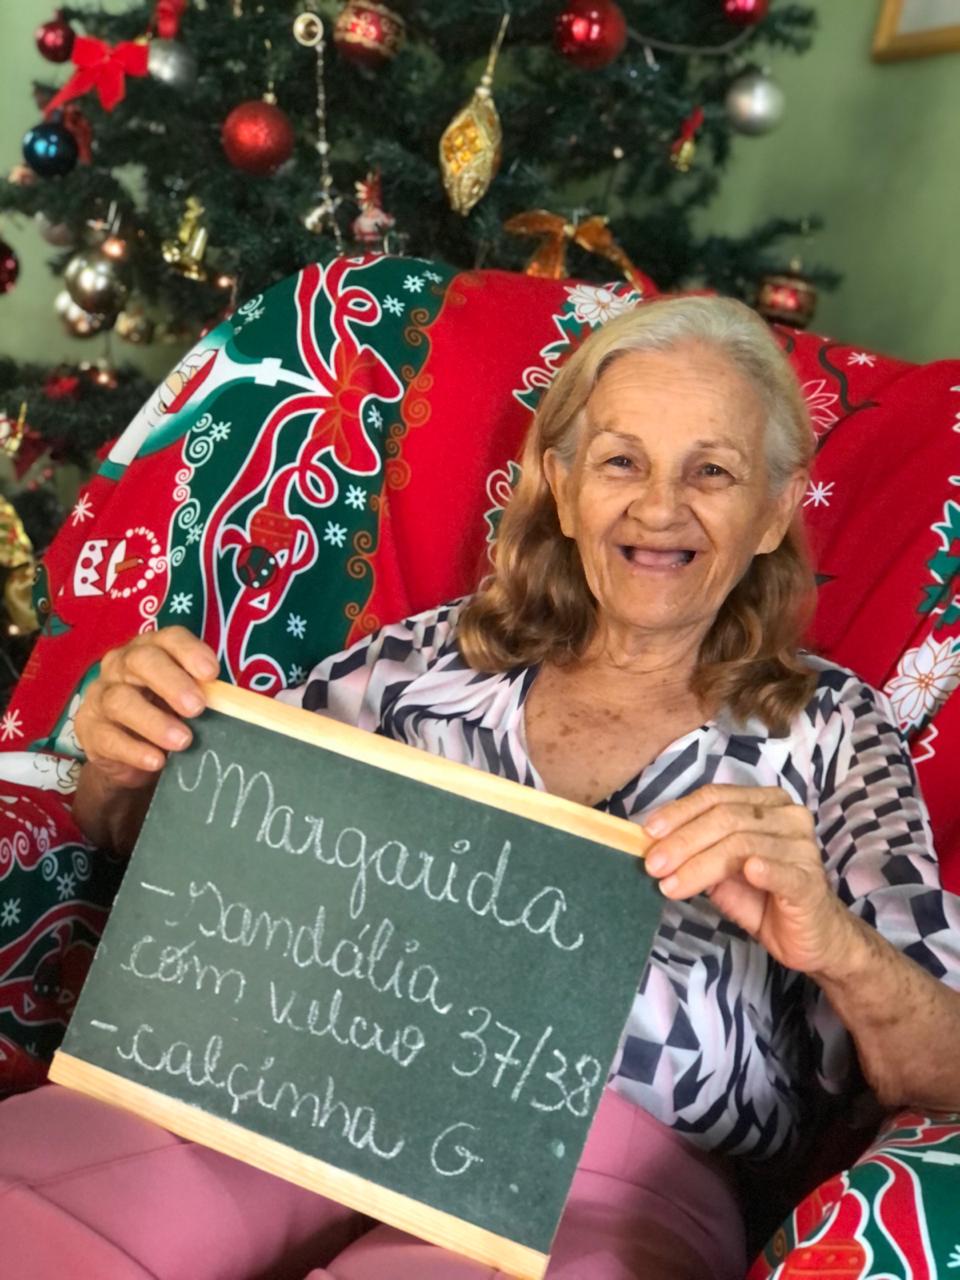 Margarida
- Sandália
com velcro 37/38
- calcinha G